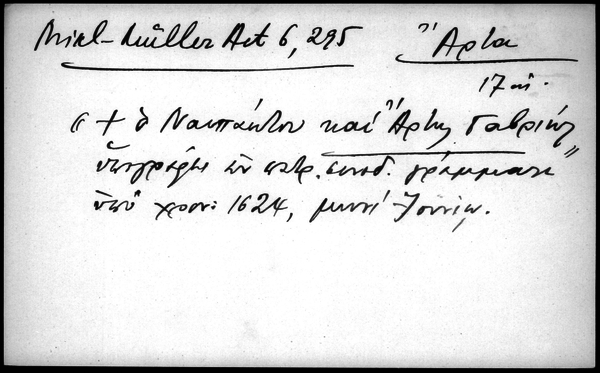 Mikl-Müller Act 6, 295 Ἄρτα
17 αἰ.
« + ὁ Ναυπάκτου καὶ Ἄρτης Γαβριὴλ
ὑπογράφει ἐν πατρ. συνοδ. γράμματι »
ὑπὸ χρον: 1624, μηνὶ Ἰουνίῳ.